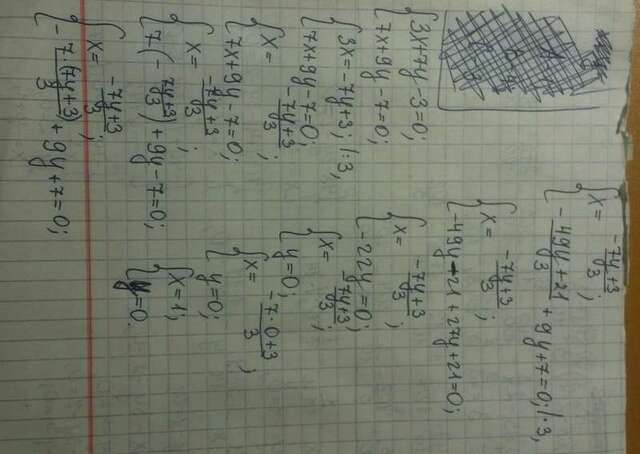 3x+7y-3=0;
7x+9y-7=0;
3x=-7y+3; |:3,
7x+9y-7=0;
x= -7y+3/3;
7x+9y-7=0;
x= -7y+3/3;
7(-7y+3/3)+9y-7=0;
x= -7y+3/3;
-7·(7y+3)/3+9y+7=0;
x= -7y+3/3;
-49y+21/3+9y+7=0; |·3,
x= -7y+3/3;
-49y-21+27y+21=0;
x= -7y+3/3;
-22y=0;
x= -7y+3/3;
y=0;
x= -7·0+3/3;
y=0;
x=1;
y=0.